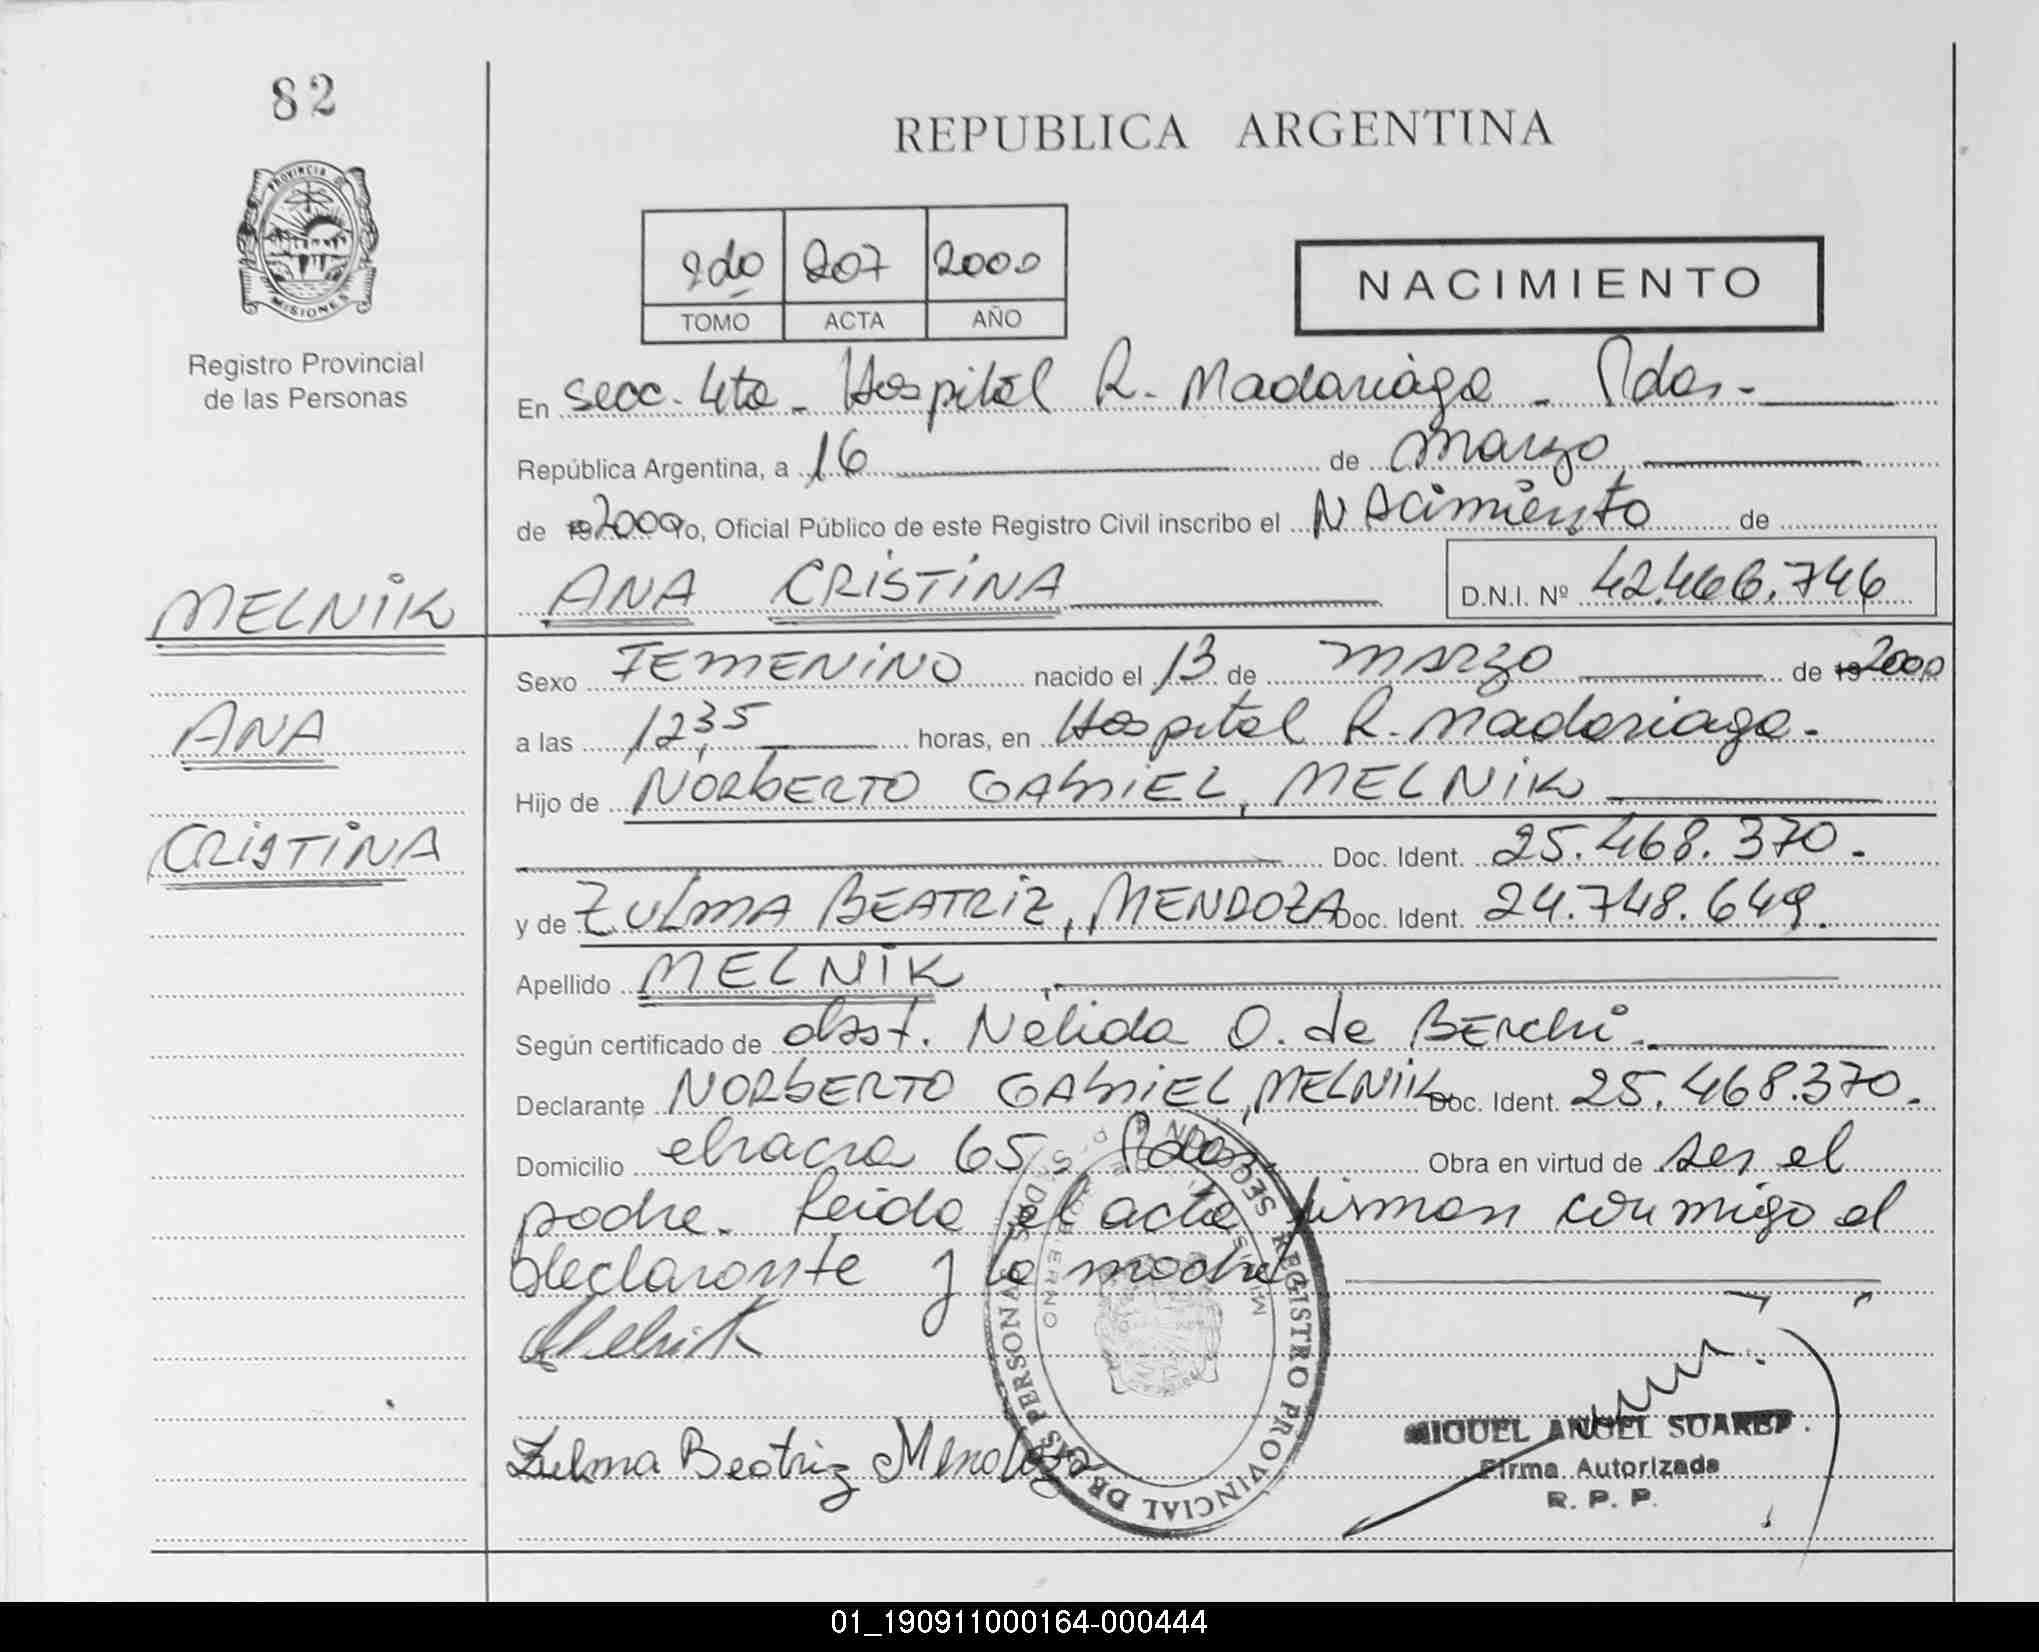 82
PROVINCIA DE
MISIONES
Registro Provincial
de las Personas
REPUBLICA ARGENTINA
2do 207 2000
TOMO ACTA AÑO
NACIMIENTO
En secc. 4ta - Hospital R. Madariaga - Pdas.-
República Argentina, a 16 de marzo
de 19 2000 yo, Oficial Público de este Registro Civil inscribo el NAcimiento de
ANA CRISTINA D.N.I. Nº 42.466.746
MELNIK
Sexo FEMENINO nacido el 13 de marzo de 19 2000
ANA
a las 12,35 horas, en Hospital R. Madariaga.
Hijo de NORBERTO GABRIEL, MELNIK
CRISTINA
Doc. Ident. 25.468.370.
y de ZULMA BEATRIZ, MENDOZA Doc. Ident. 24.748.649.
Apellido MELNIK
Según certificado de obst. Nélida O. de BERchi.
Declarante NORBERTO GABRIEL, MELNIK Doc. Ident. 25.468.370.
Domicilio chacra 65, Pdas. Obra en virtud de ser el
padre. Leida el acta firman conmigo el
declarante y la madre
Melnik
Zulma Beatriz Mendoza
REGISTRO PROVINCIAL DE LAS PERSONAS
MIGUEL ANGEL SUAREZ
Firma Autorizada
R. P. P.
01_190911000164-000444